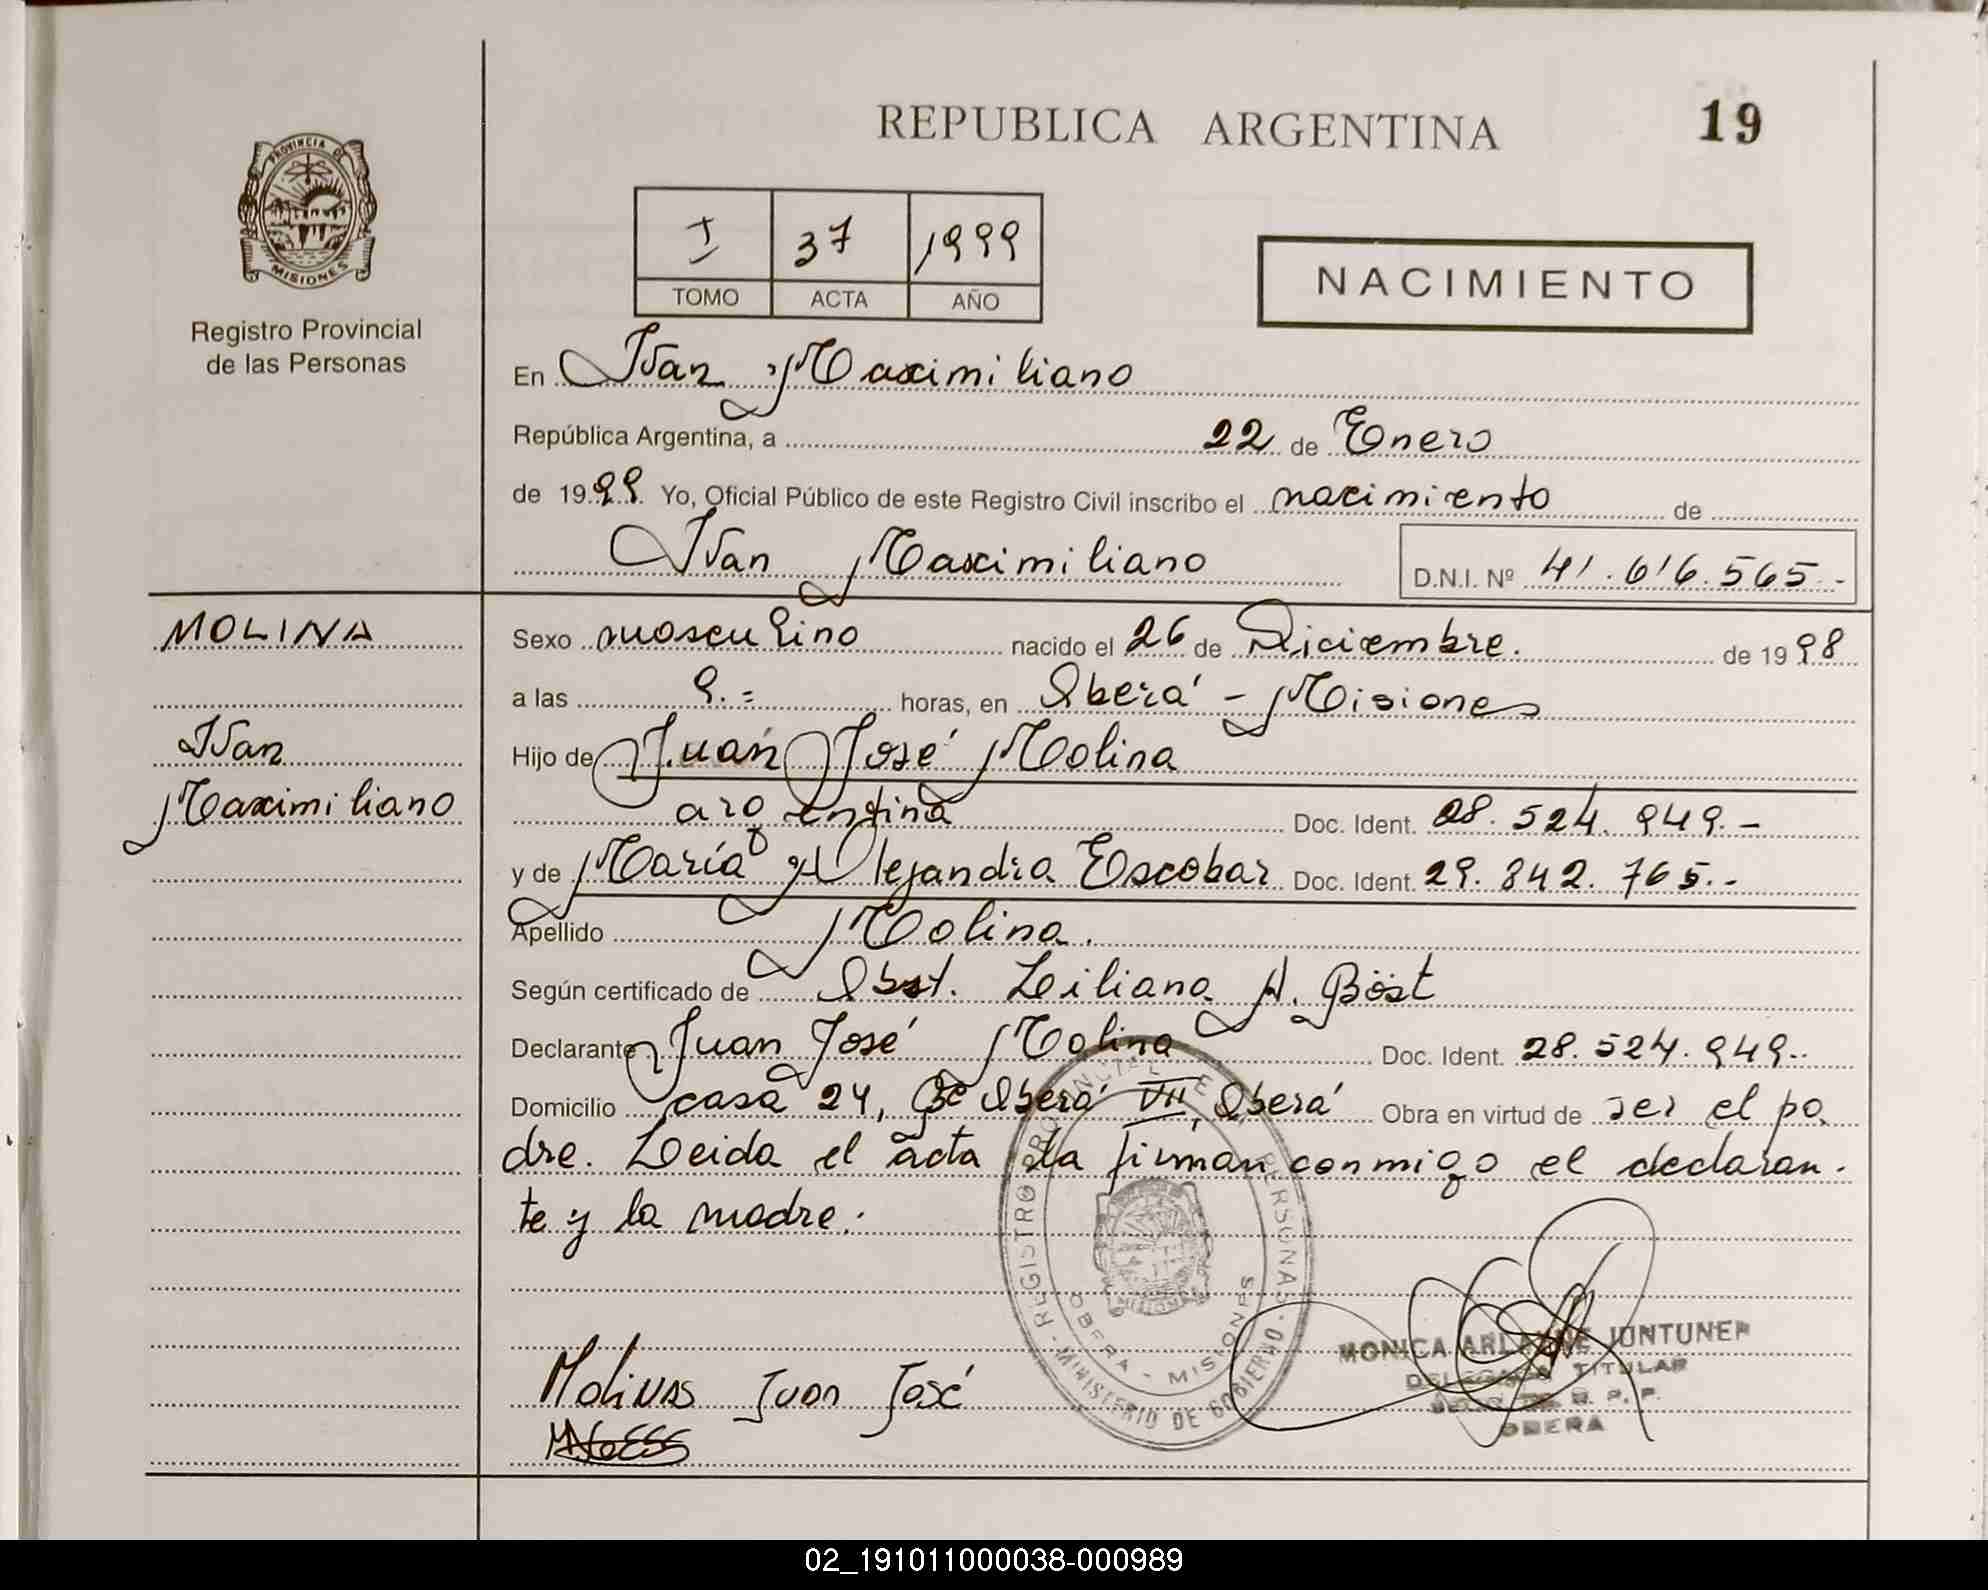 REPUBLICA ARGENTINA
19
PROVINCIA DE
MISIONES
Registro Provincial
de las Personas
I 37 1999
TOMO ACTA AÑO
NACIMIENTO
En Ivan Maximiliano
República Argentina, a 22 de Enero
de 1999 Yo, Oficial Público de este Registro Civil inscribo el nacimiento de
Ivan Maximiliano D.N.I. Nº 41.616.565.-
MOLINA
Ivan
Maximiliano
Sexo masculino nacido el 26 de Diciembre. de 1998
a las 9.= horas, en Oberá - Misiones
Hijo de Juan José Molina
argentina Doc. Ident. 28.524.949.-
y de María Alejandra Escobar Doc. Ident. 29.842.765.-
Apellido Molina.
Según certificado de Obst. Liliana A. Böst
Declarante Juan José Molina Doc. Ident. 28.524.949.-
Domicilio casa 24, Bº Oberá VII, Oberá Obra en virtud de ser el pa.
dre. Leida el acta la firman conmigo el declaran.
te y la madre.
REGISTRO PROVINCIAL DE PERSONAS
OBERA - MISIONES
MINISTERIO DE GOBIERNO
Molinas Juan José
MONICA
TITULAR
OBERA
02_191011000038-000989